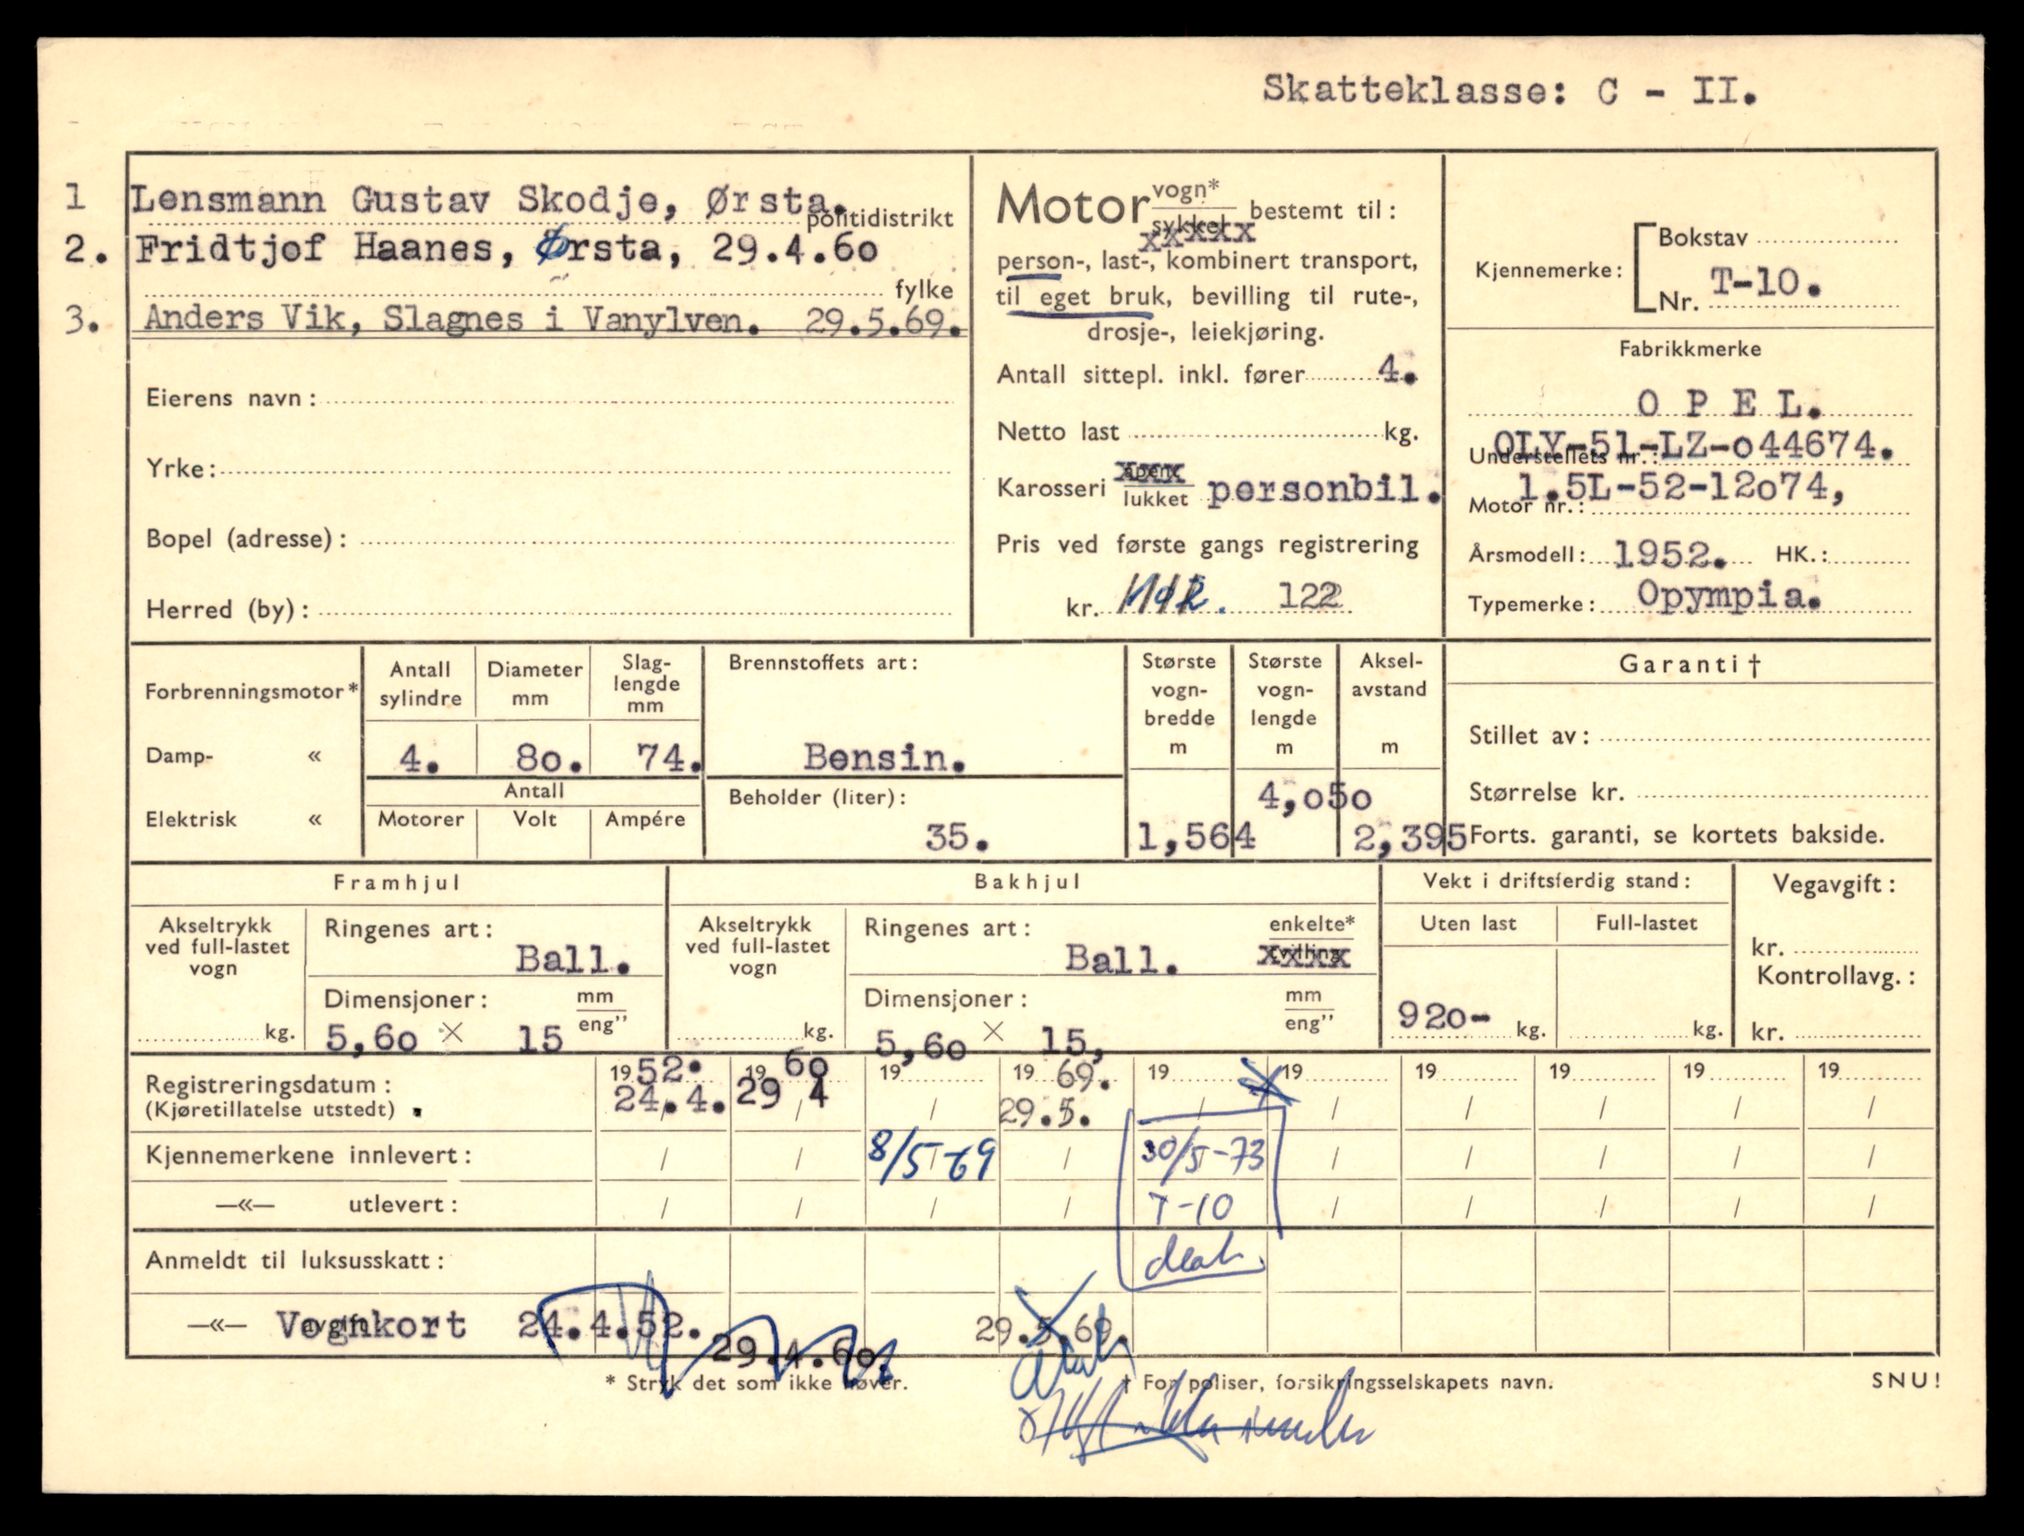 Skatteklasse: C - II.
1 Lensmann Gustav Skodje, Ørsta.
politidistrikt
2. Fridtjof Haanes, Ørsta, 29.4.60
fylke
3. Anders Vik, Slagnes i Vanylven. 29.5.69.
Eierens navn:
Yrke:
Bopel (adresse):
Herred (by):
Motor vogn* sykkel bestemt til:
person-, last-, kombinert transport,
til eget bruk, bevilling til rute-,
drosje-, leiekjøring.
Antall sittepl. inkl. fører 4.
Netto last kg.
Karosseri åpen lukket personbil.
Pris ved første gangs registrering
kr. 122
Kjennemerke: Bokstav
Nr. T-10.
Fabrikkmerke
O P E L.
Understellets nr.: OLY-51-LZ-o44674.
Motor nr.: 1.5L-52-12o74,
Årsmodell: 1952. HK.:
Typemerke: Opympia.
Forbrenningsmotor*
Damp- «
Elektrisk «
Antall sylindre
Diameter mm
Slag-lengde mm
4. 80. 74.
Antall
Motorer Volt Ampére
Brennstoffets art:
Bensin.
Beholder (liter):
35.
Største vogn-bredde m
1,564
Største vogn-lengde m
4,o5o
Aksel-avstand m
2,395
Garanti †
Stillet av:
Størrelse kr.
Forts. garanti, se kortets bakside.
Framhjul
Akseltrykk
ved full-lastet
vogn
kg.
Ringenes art:
Ball.
Dimensjoner: mm eng”
5,6o × 15
Bakhjul
Akseltrykk
ved full-lastet
vogn
kg.
Ringenes art: enkelte* tvilling
Ball. xxxx
Dimensjoner: mm eng”
5,6o × 15,
Vekt i driftsferdig stand:
Uten last Full-lastet
920- kg. kg.
Vegavgift:
kr.
Kontrollavg.:
kr.
Registreringsdatum: 1952. 1960 19 1969. 19 19 19 19 19 19
(Kjøretillatelse utstedt) . 24.4. 29/4 / 29.5. / / / / / /
Kjennemerkene innlevert: / / 8/5-69 / 30/5-73 / / / / /
—«— utlevert: / / / / T-10 / / / / /
Anmeldt til luksusskatt:
—«— Vognkort 24.4.52. 29.4.60. 29.5.69.
* Stryk det som ikke høver.
† For poliser, forsikringsselskapets navn.
SNU!